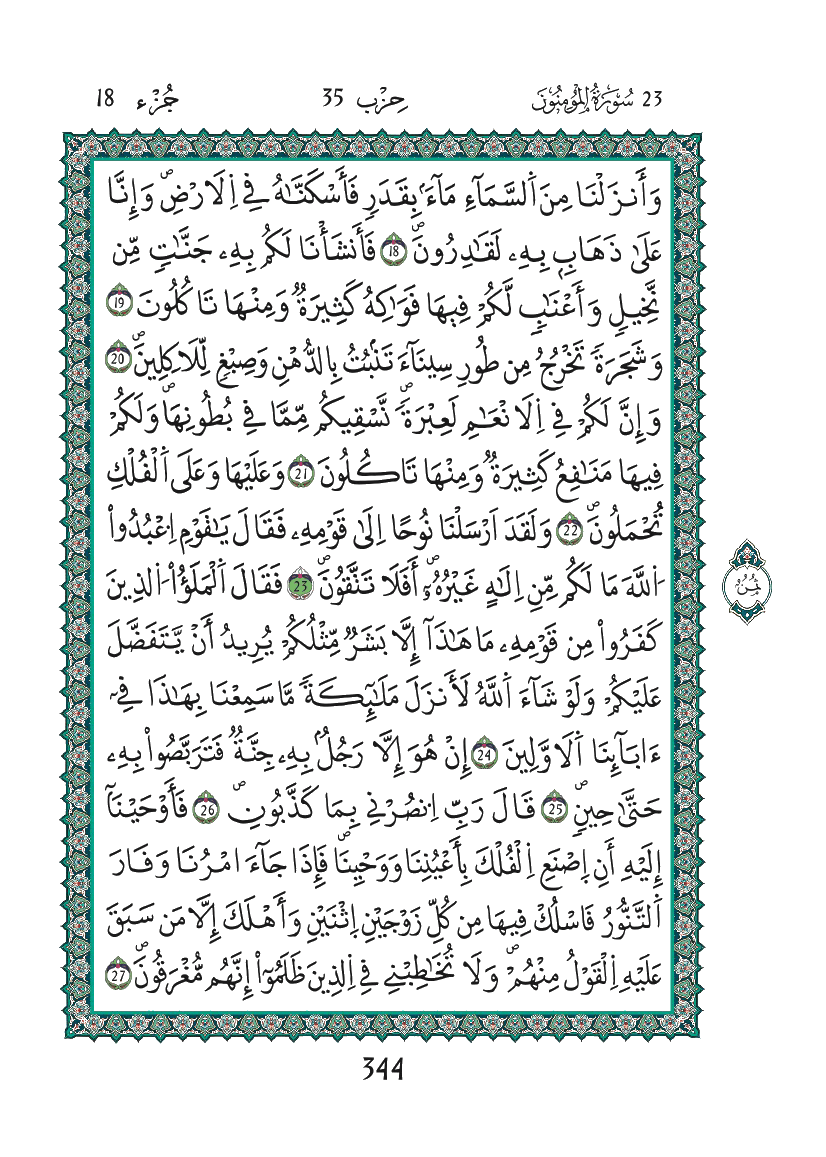 23 سُورَةُ المُؤْمِنُونَ حِزْب 35 جُزْء 18
وَأَنزَلْنَا مِنَ اَ۬لسَّمَآءِ مَآءَۢ بِقَدَرٖ فَأَسْكَنَّٰهُ فِے اِ۬لَارْضِۖ وَإِنَّا
عَلَىٰ ذَهَابِۢ بِهِۦ لَقَٰدِرُونَۖ 18 فَأَنشَأْنَا لَكُم بِهِۦ جَنَّٰتٖ مِّن
نَّخِيلٖ وَأَعْنَٰبٖ لَّكُمْ فِيهَا فَوَٰكِهُ كَثِيرَةٞ وَمِنْهَا تَاكُلُونَ 19
وَشَجَرَةٗ تَخْرُجُ مِن طُورِ سِينَآءَ تَنۢبُتُ بِالدُّهْنِ وَصِبْغٖ لِّلَاكِلِينَۖ 20
وَإِنَّ لَكُمْ فِے اِ۬لَانْعَٰمِ لَعِبْرَةٗۖ نَّسْقِيكُم مِّمَّا فِے بُطُونِهَاۖ وَلَكُمْ
فِيهَا مَنَٰفِعُ كَثِيرَةٞ وَمِنْهَا تَاكُلُونَ 21 وَعَلَيْهَا وَعَلَى اَ۬لْفُلْكِ
تُحْمَلُونَۖ 22 وَلَقَدَ اَرْسَلْنَا نُوحًا اِلَىٰ قَوْمِهِۦ فَقَالَ يَٰقَوْمِ اِ۟عْبُدُواْ
اُ۬للَّهَ مَا لَكُم مِّنِ اِلَٰهٍ غَيْرُهُۥٓۖ أَفَلَا تَتَّقُونَۖ 23 فَقَالَ اَ۬لْمَلَؤُاْ اُ۬لذِينَ
كَفَرُواْ مِن قَوْمِهِۦ مَا هَٰذَآ إِلَّا بَشَرٞ مِّثْلُكُمْ يُرِيدُ أَنْ يَّتَفَضَّلَ
عَلَيْكُمْ وَلَوْ شَآءَ اَ۬للَّهُ لَأَنزَلَ مَلَٰٓئِكَةٗ مَّا سَمِعْنَا بِهَٰذَا فِےٓ
ءَابَآئِنَا اَ۬لَاوَّلِينَ 24 إِنْ هُوَ إِلَّا رَجُلُۢ بِهِۦ جِنَّةٞ فَتَرَبَّصُواْ بِهِۦ
حَتَّىٰ حِينٖۖ 25 قَالَ رَبِّ اِ۟نصُرْنِے بِمَا كَذَّبُونِۖ 26 فَأَوْحَيْنَآ
إِلَيْهِ أَنِ اِ۪صْنَعِ اِ۬لْفُلْكَ بِأَعْيُنِنَا وَوَحْيِنَاۖ فَإِذَا جَآءَ امْرُنَا وَفَارَ
اَ۬لتَّنُّورُ فَاسْلُكْ فِيهَا مِن كُلِّ زَوْجَيْنِ اِ۪ثْنَيْنِ وَأَهْلَكَ إِلَّا مَن سَبَقَ
عَلَيْهِ اِ۬لْقَوْلُ مِنْهُمْۖ وَلَا تُخَٰطِبْنِے فِے اِ۬لذِينَ ظَلَمُوٓاْ إِنَّهُم مُّغْرَقُونَۖ 27
ثُمُنُ
344